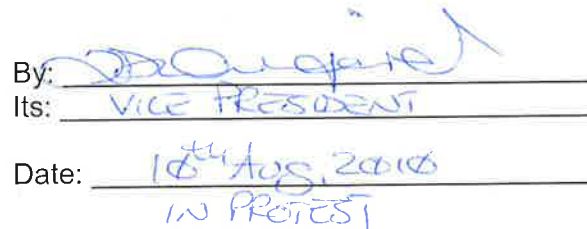 By:
Its: VICE PRESIDENT
Date: 10th Aug, 2010
IN PROTEST